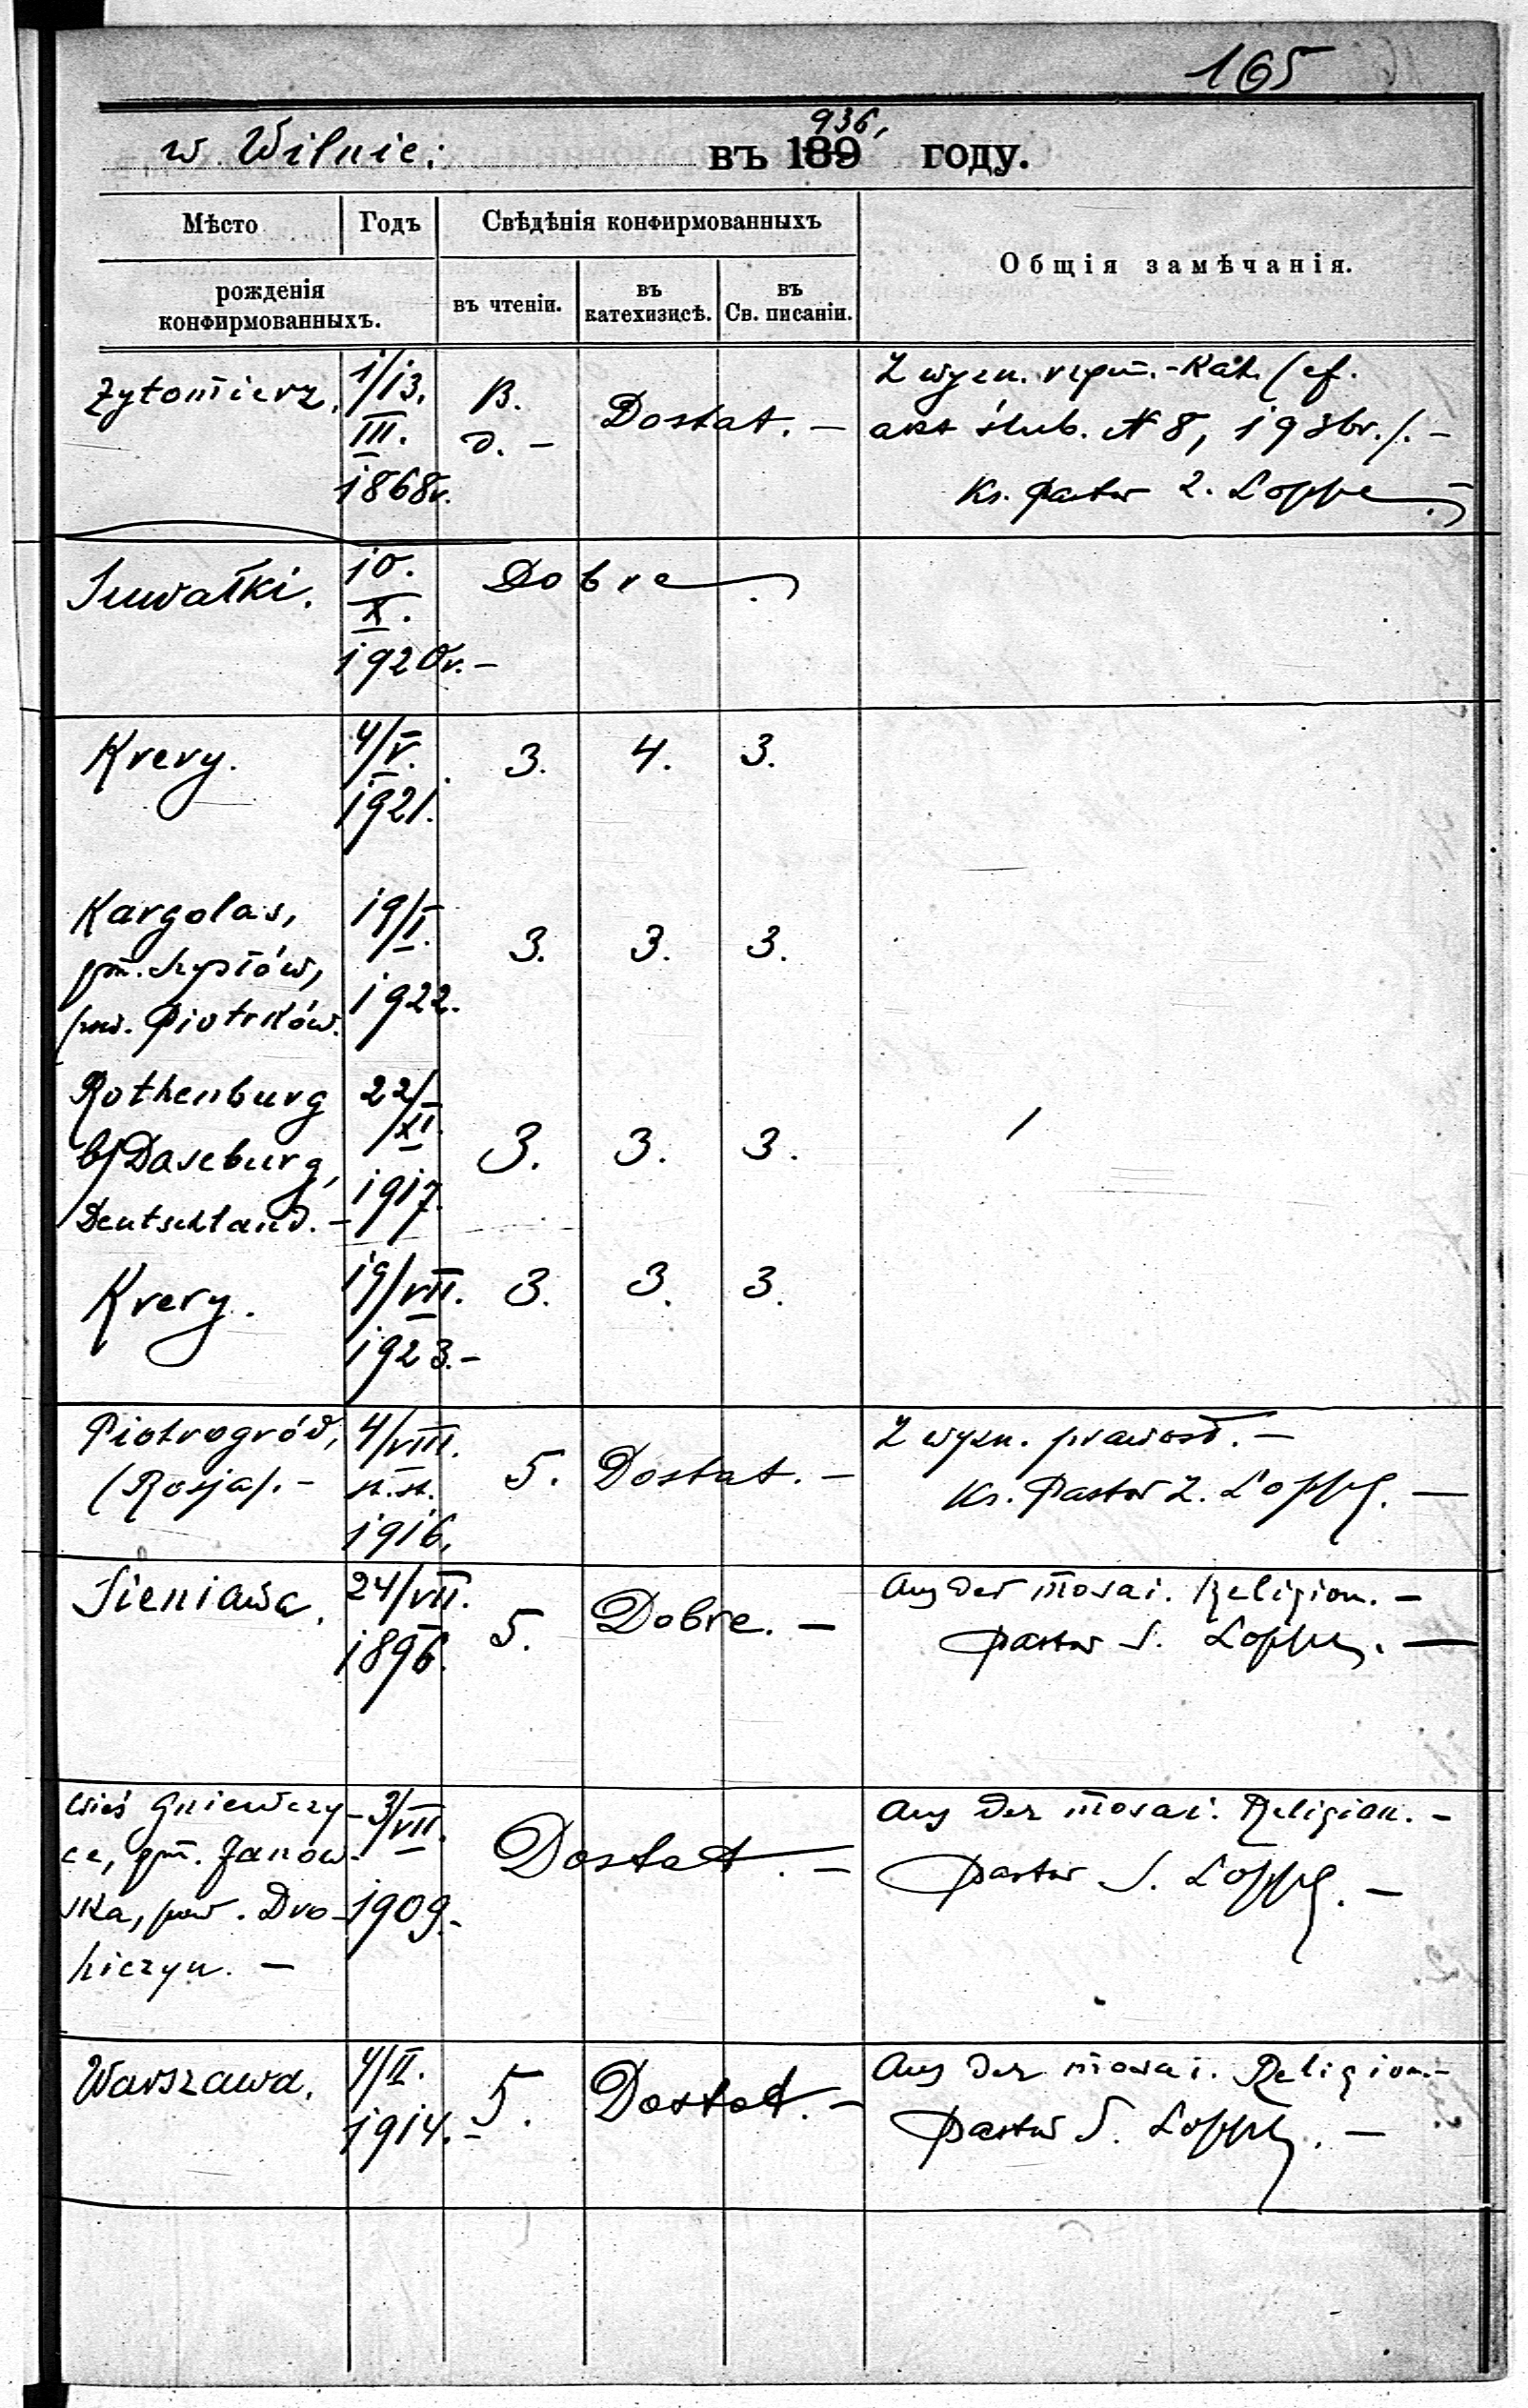 165
w Wilnie: въ 189 936, году.
Мѣсто Годъ Свѣдѣнія конфирмованныхъ Общія замѣчанія.
рожденія конфирмованныхъ. въ чтеніи. въ катехизисѣ. въ Св. писаніи.
Żytomierz, 1/13. B. Dostat. – Z wyzn. rzym.-Kat. (cf.
III. d. – akt ślub. N 8, 1936r./. –
1868r. Ks. Pastor Z. Loppe
Suwałki. 10. Dobre
X.
1920r. –
Krery. 4/V. 3. 4. 3.
1921.
Kargolas, 19/I. 3. 3. 3.
gm. 1922.
pow. Piotrków.
Rothenburg 22/XI. 3. 3. 3.
b/Daseburg, 1917.
Deutschland. –
Krery. 19/VII. 3. 3. 3.
1923. –
Piotrogród, 4/VIII. 5. Dostat. – Z wyzn. prawosł. –
(Rosja/. – st. st. Ks. Pastor Z. Loppe. –
1916,
Sieniawa, 24/VII. 5. Dobre. – Aus der mosai. Religion. –
1896. Pastor S. Loppe. –
wieś Gniewczy- 3/VII. Dostat. – Aus der mosai. Religion. –
ce, gm. Janow- Pastor S. Loppe. –
ska, pow. Dro- 1909. –
hiczyn. –
Warszawa. 4/II. 5. Dostat. – Aus der mosai. Religion. –
1914. – Pastor S. Loppe. –